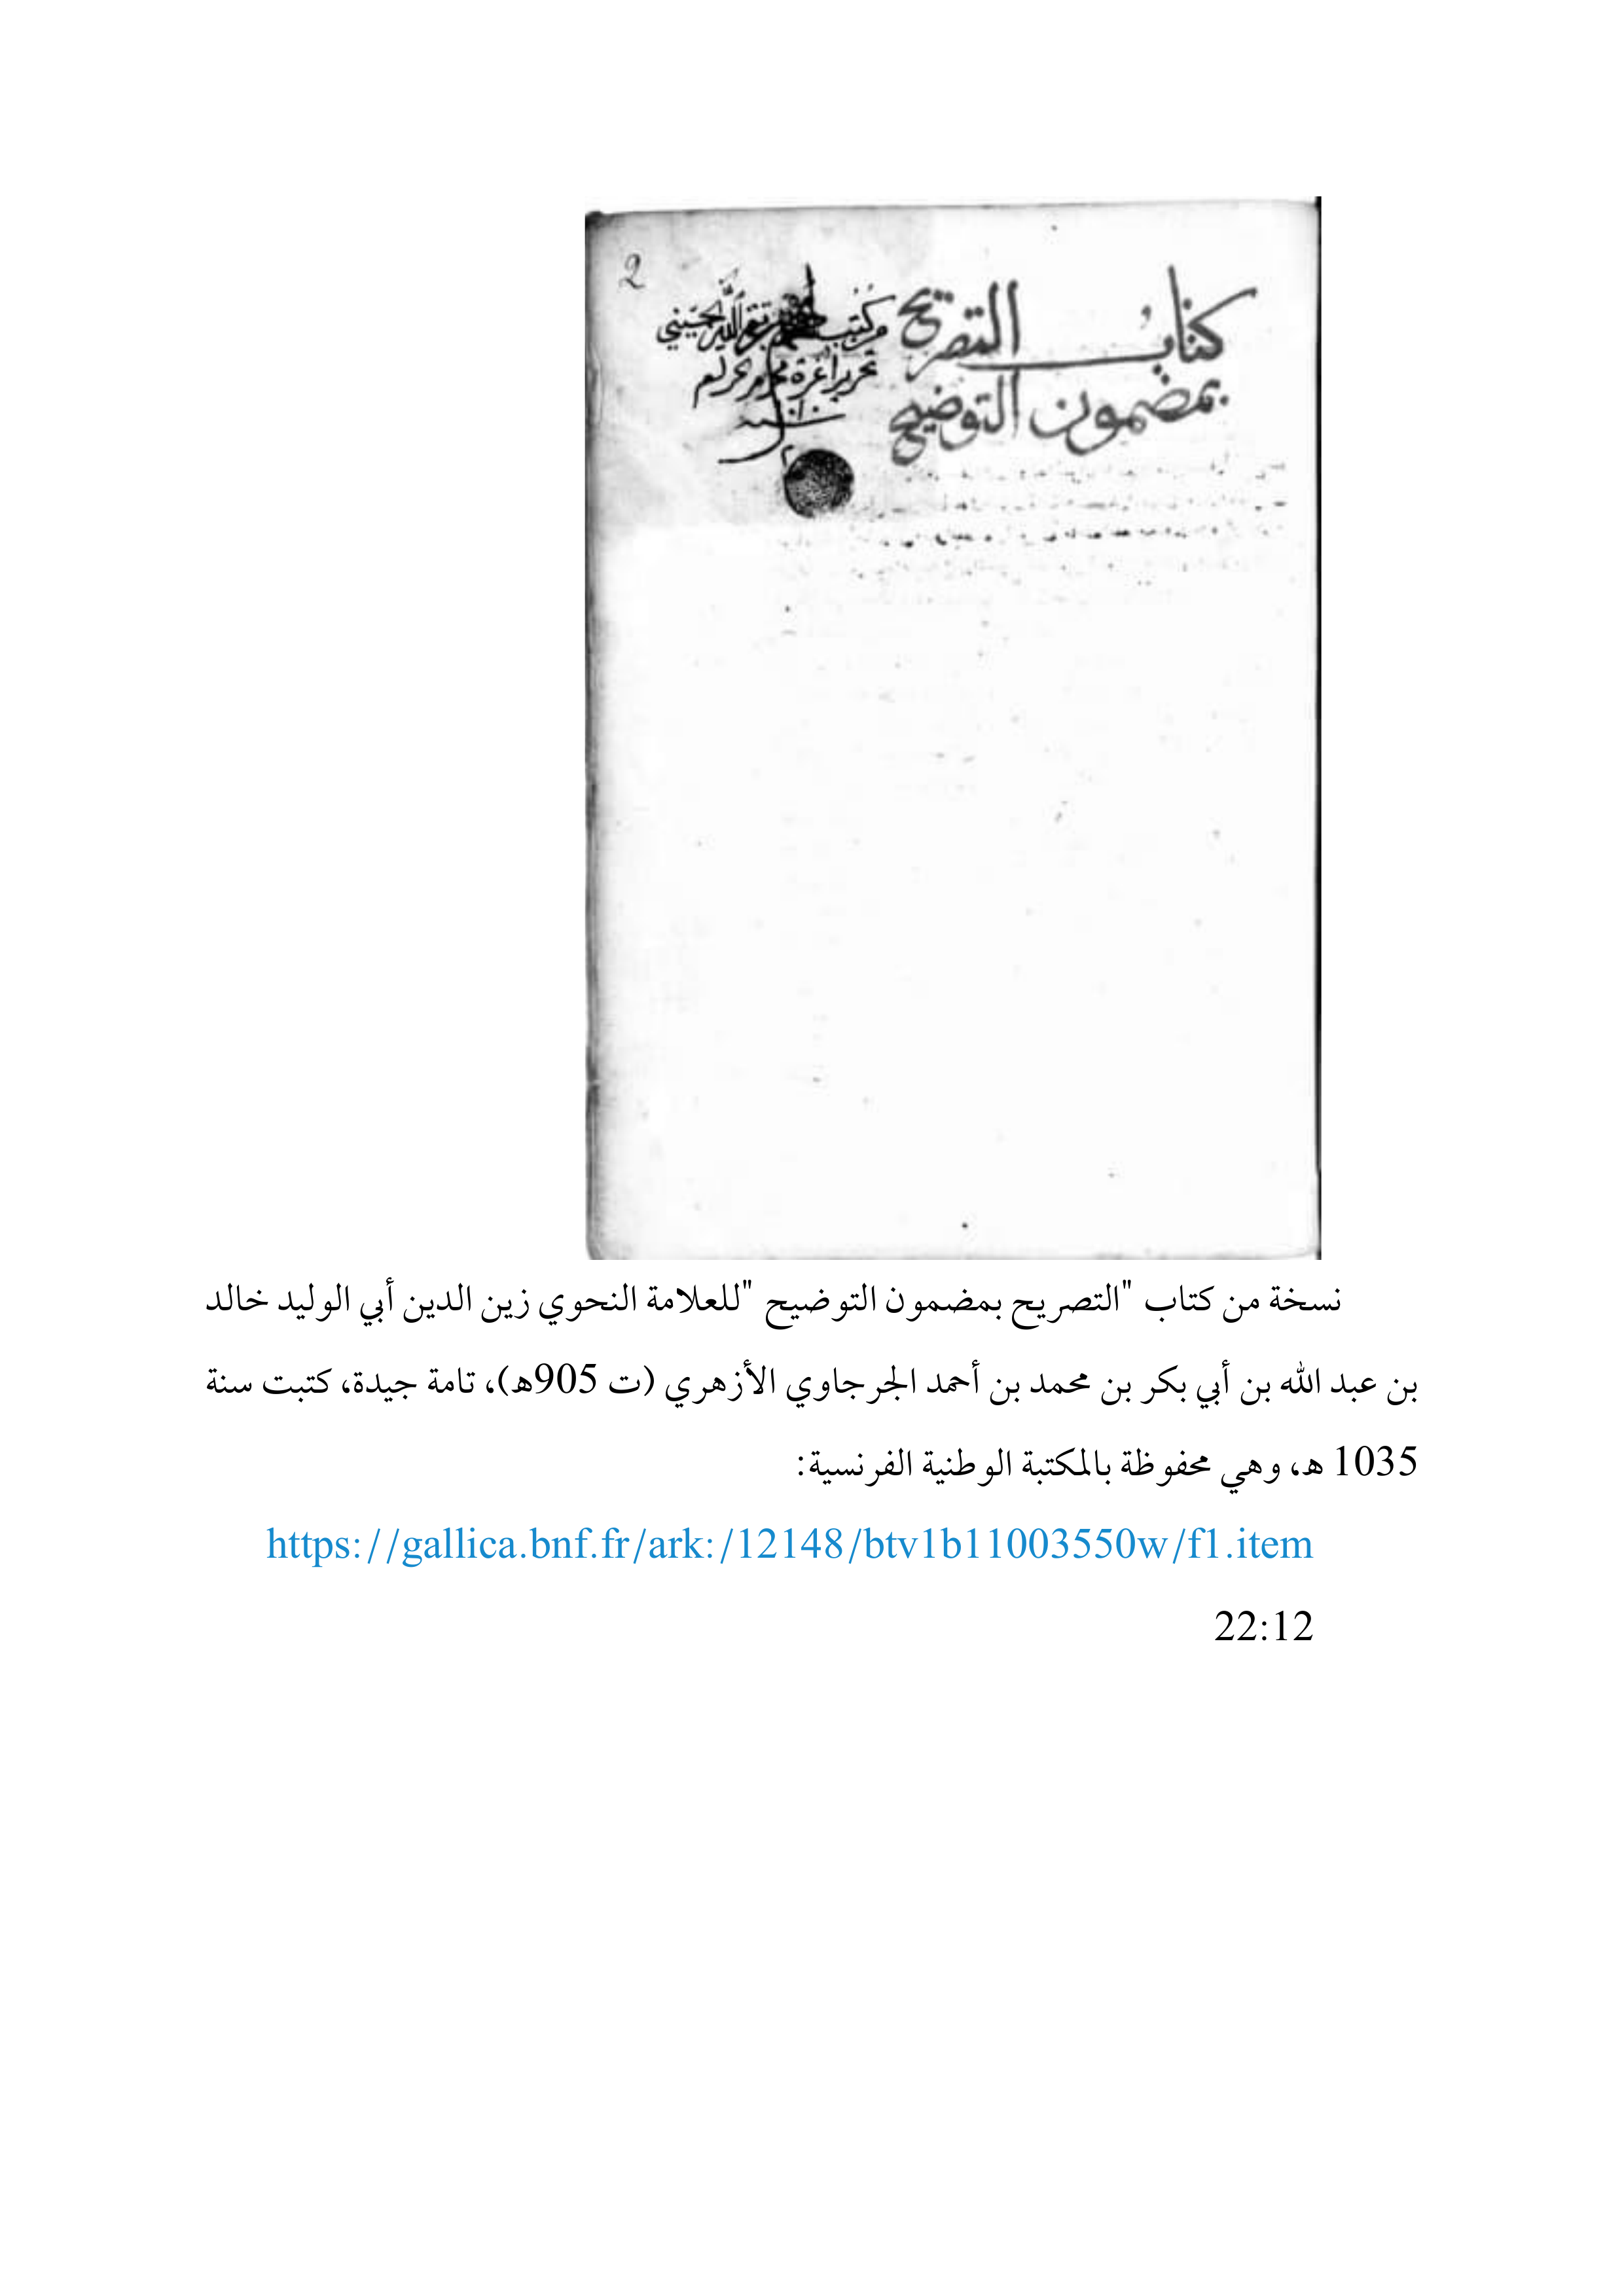 2
كتاب التصريح
بمضمون التوضيح
من كتب الحسيني
تحريرا غرة محرم الحرام
سنة
نسخة من كتاب "التصريح بمضمون التوضيح "للعلامة النحوي زين الدين أبي الوليد خالد
بن عبد الله بن أبي بكر بن محمد بن أحمد الجرجاوي الأزهري (ت 905ه)، تامة جيدة، كتبت سنة
1035 ه، وهي محفوظة بالمكتبة الوطنية الفرنسية:
https://gallica.bnf.fr/ark:/12148/btv1b11003550w/f1.item
22:12